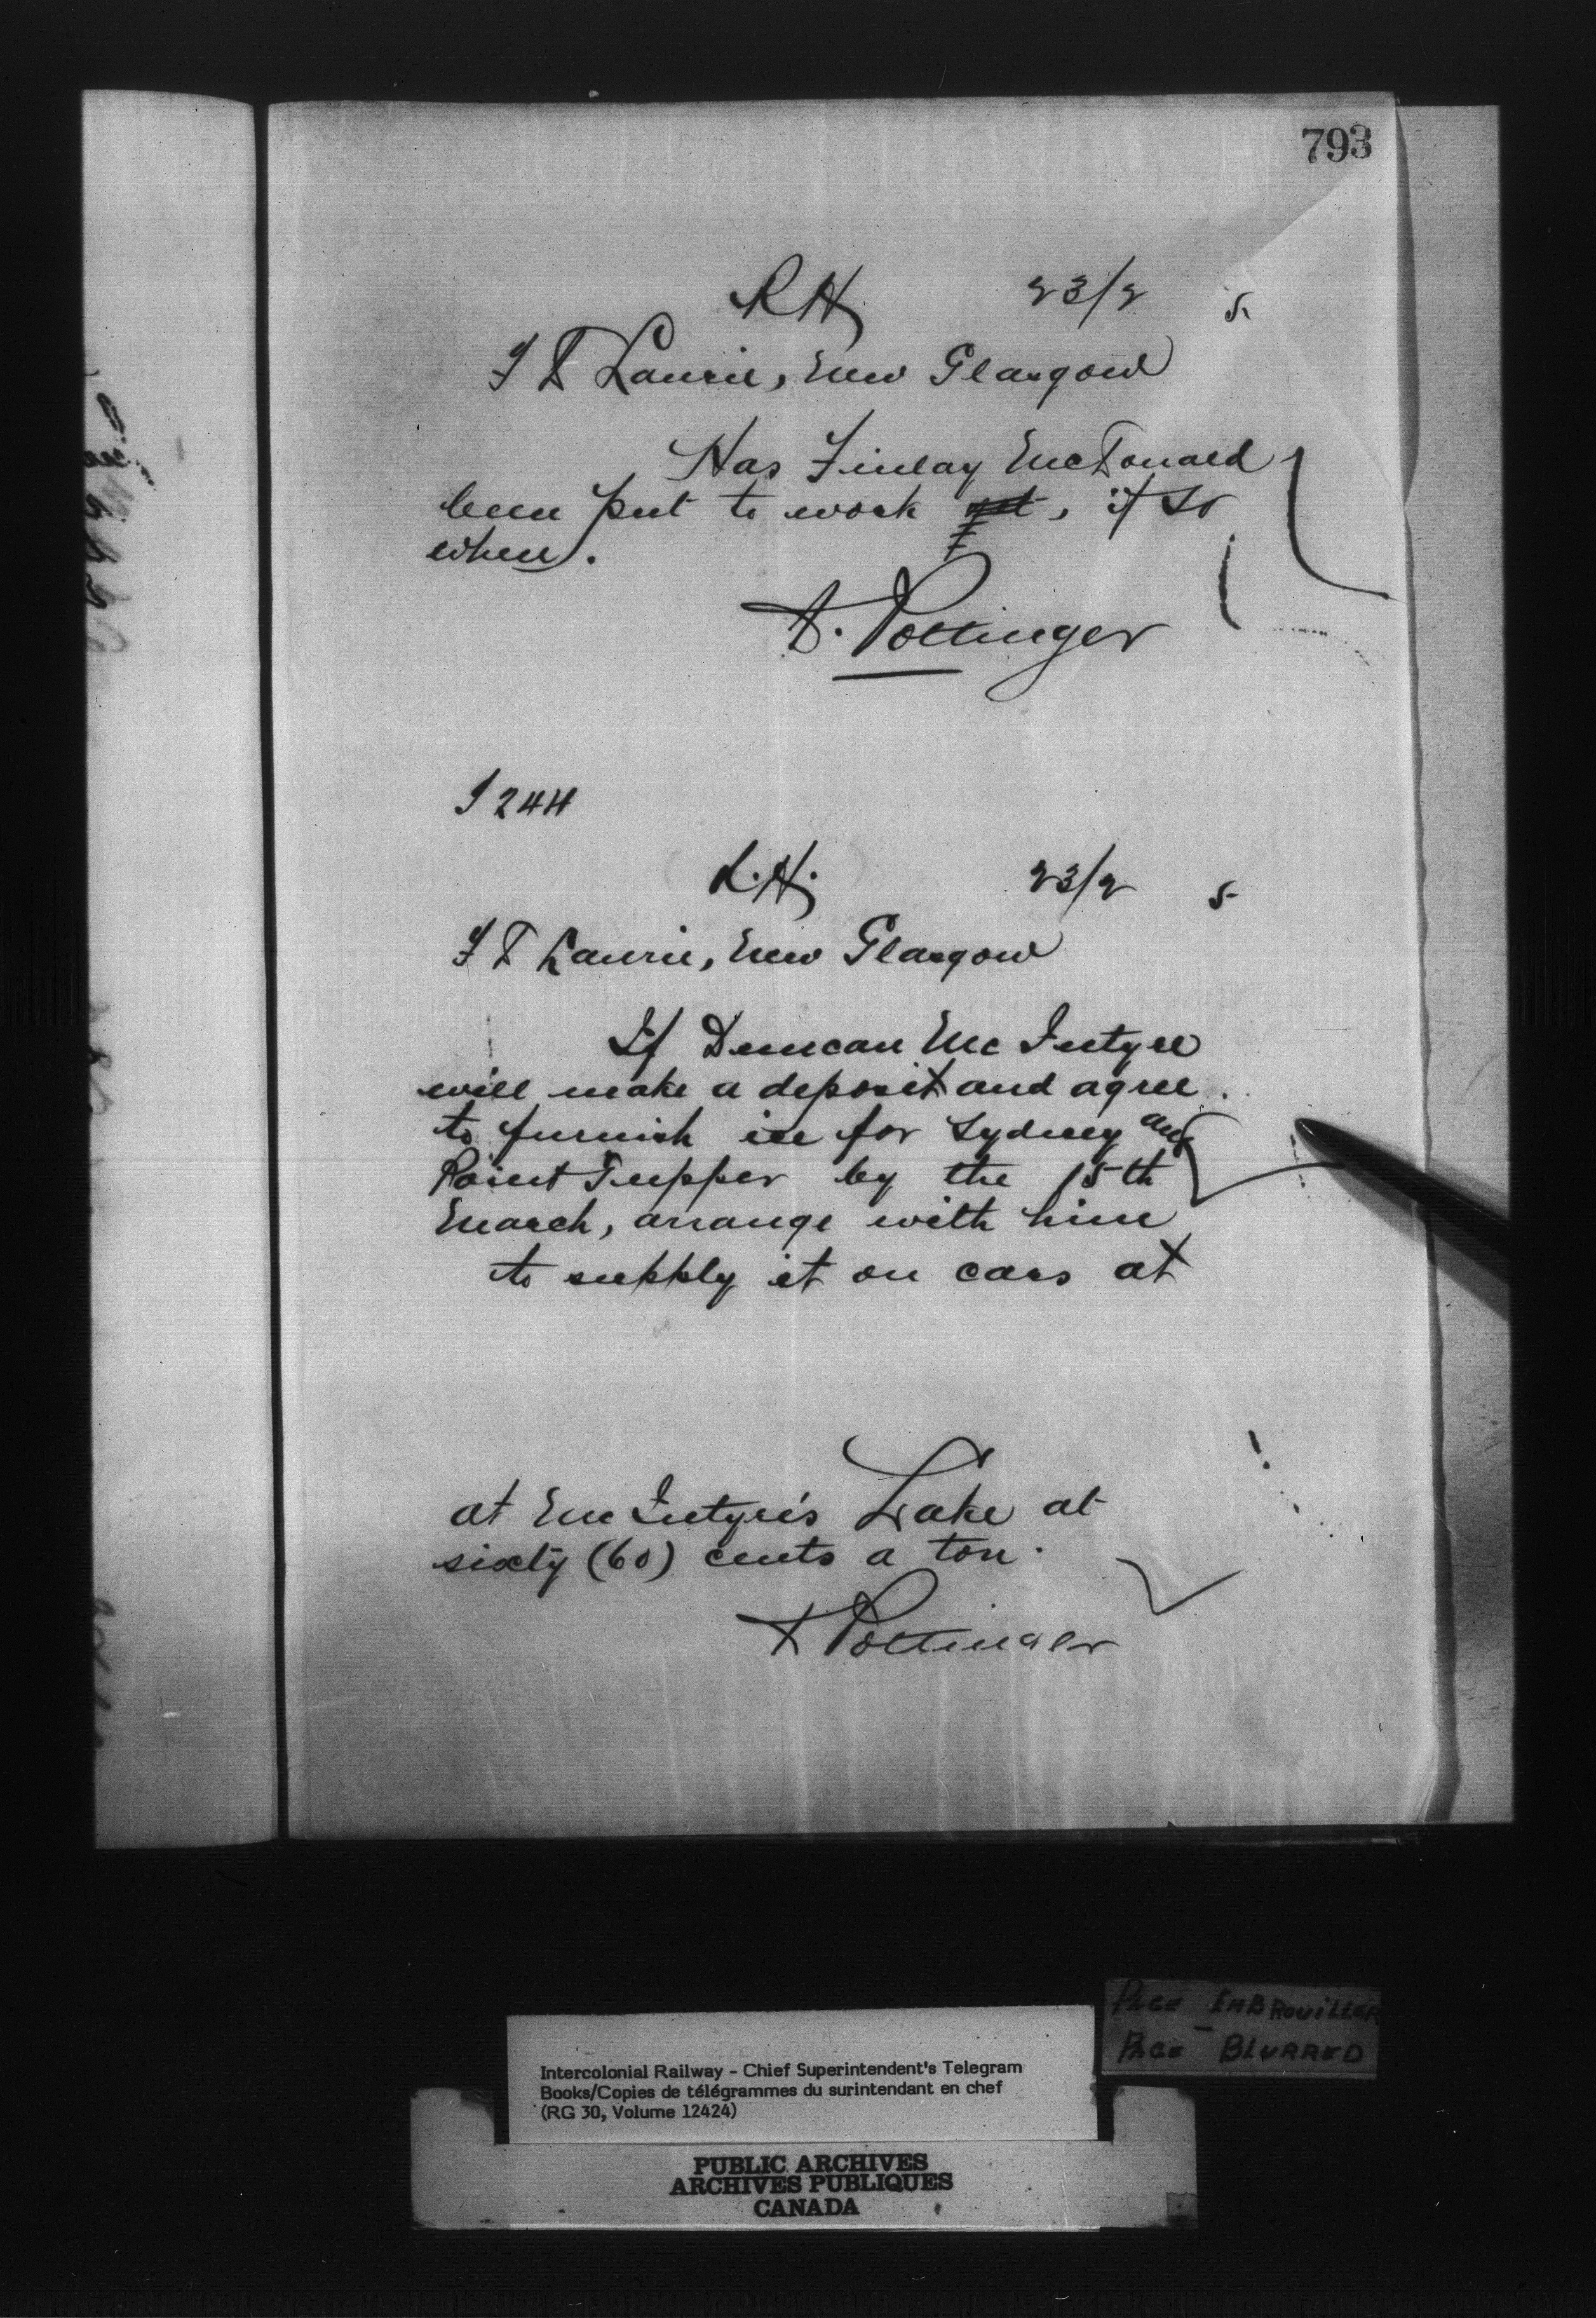 793
RH 23/2 5
T D Laurie, New Glasgow
Has Finlay McDonald
been put to work, if so
when.
D. Pottinger
J 244
R.H. 23/2 5
T D Laurie, New Glasgow
If Duncan McIntyre
will make a deposit and agree
to furnish ice for Sydney and
Point Tupper by the 15th
March, arrange with him
to supply it on cars at
at McIntyre's Lake at
sixty (60) cents a ton.
D Pottinger
PAGE EMBROUILLER
PAGE - BLURRED
Intercolonial Railway - Chief Superintendent's Telegram
Books/Copies de télégrammes du surintendant en chef
(RG 30, Volume 12424)
PUBLIC ARCHIVES
ARCHIVES PUBLIQUES
CANADA